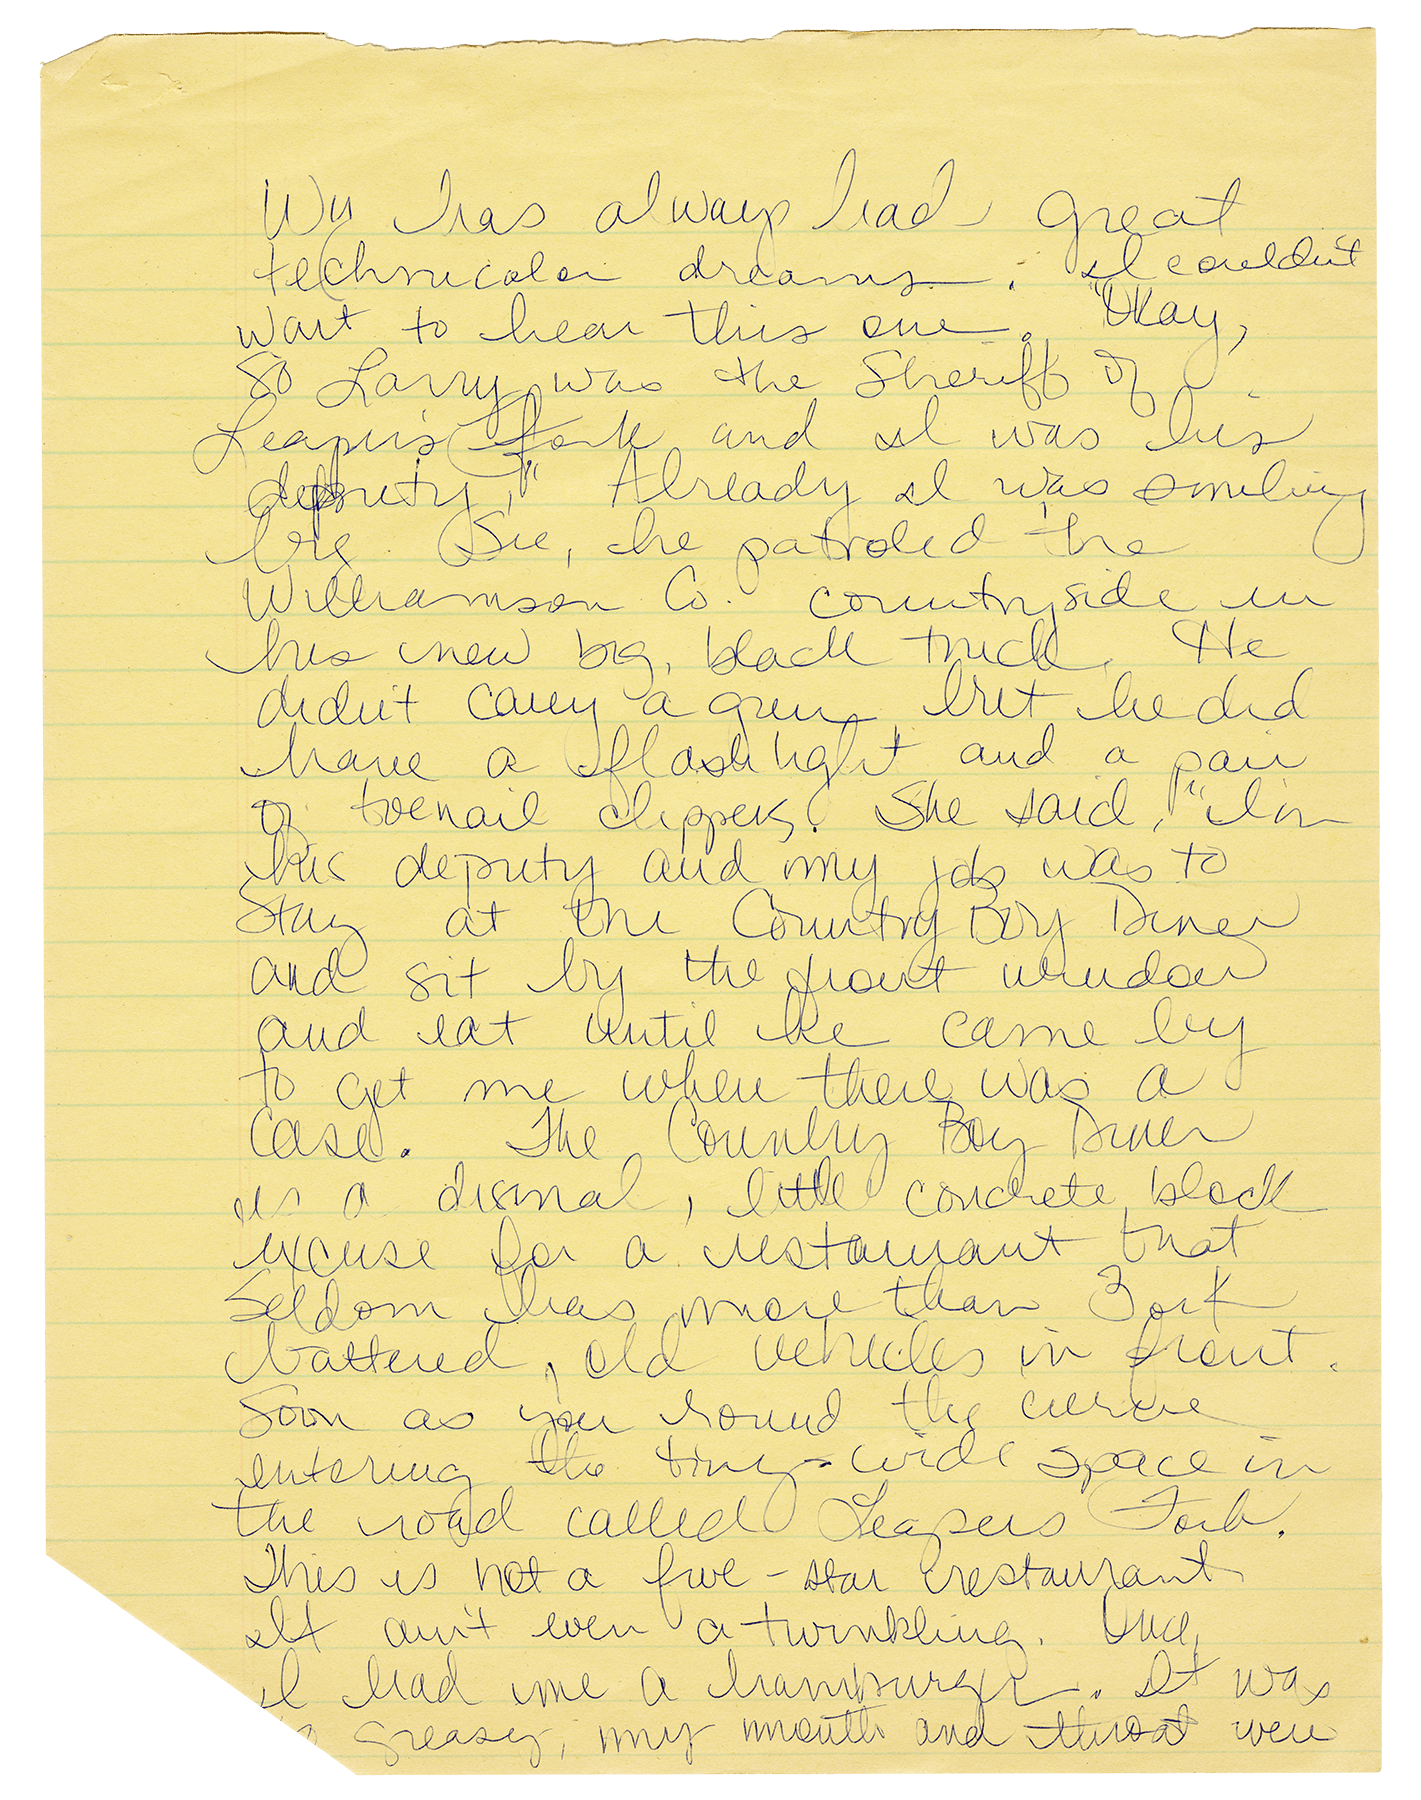 Wy has always had great
technicolor dreams. I couldn't
wait to hear this one. "Okay,
So Larry was the Sheriff of
Leaper's Fork and I was his
deputy," Already I was smiling
big. See, he patroled the
Williamson Co. countryside in
his new big, black truck. He
didn't carry a gun but he did
have a flashlight and a pair
of toenail clippers. She said, "I'm
his deputy and my job was to
Stay at the Country Boy Diner
and sit by the front window
and eat until he came by
to get me when there was a
case. The Country Boy Diner
is a dismal, little concrete block
excuse for a restaurant that
Seldom has more than 3 or 4
battered, old vehicles in front.
Soon as you round the curve
entering the tiny-wide space in
the road called Leapers Fork.
This is not a five-star restaurant
It ain't even a twinkling. Once,
I had me a hamburger. It was
greasy, my mouth and throat were